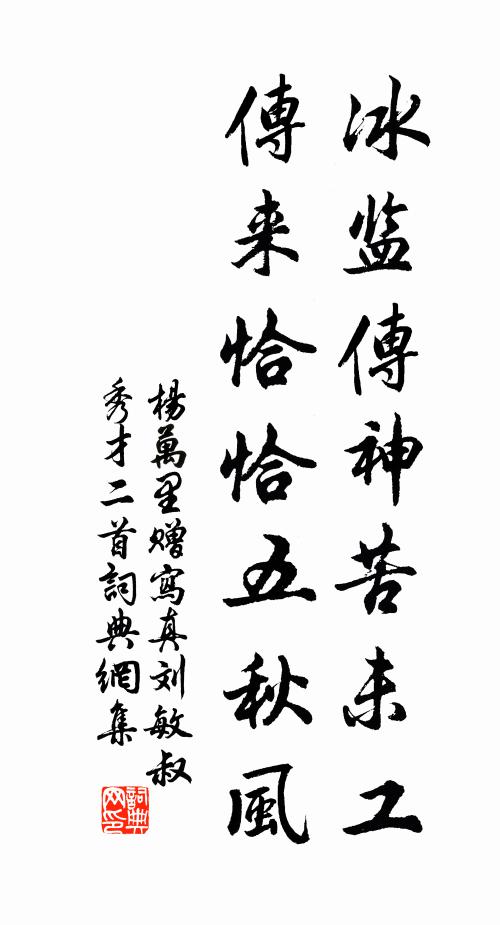 冰监傳神苦未工
傳来恰恰五秋風
楊萬里赠寫真刘敏叔
秀才二首詞典網集
詞典网印